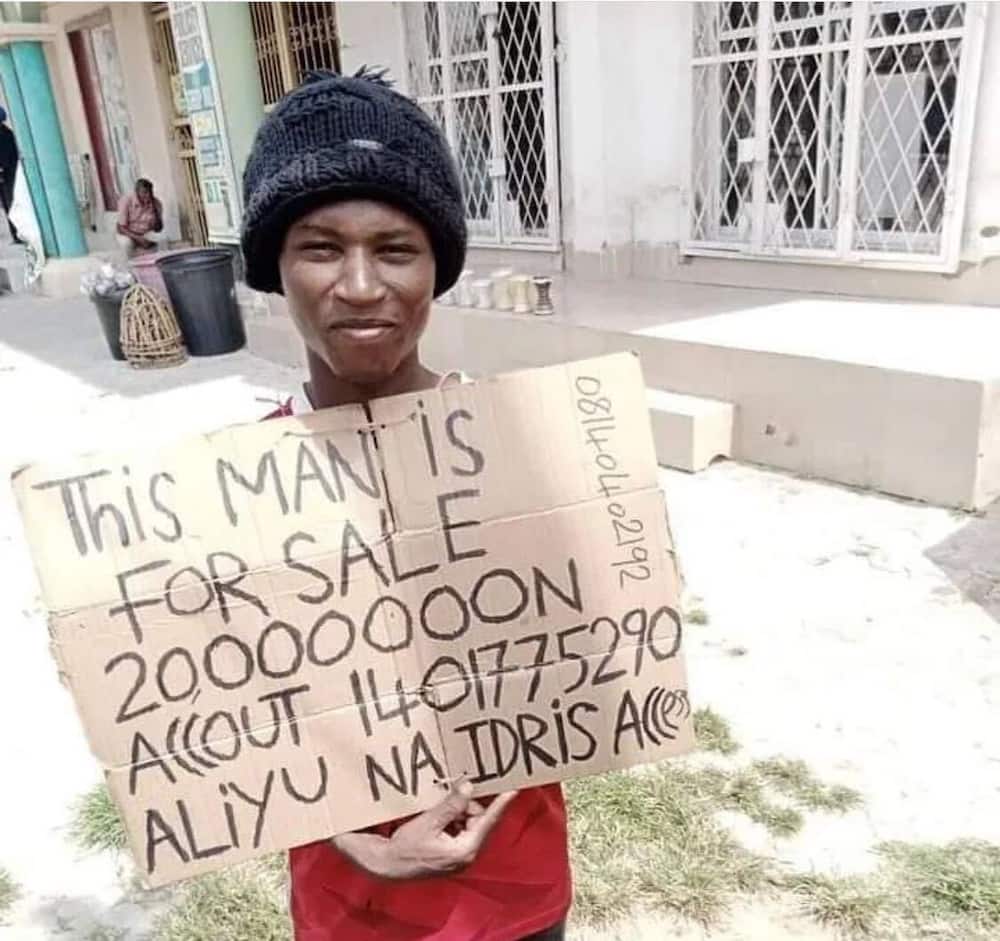 This MAN iS
FOR SALE
20,000000N
ACCOUT 1401775290
ALiYU NA IDRiS Acces
08140402192